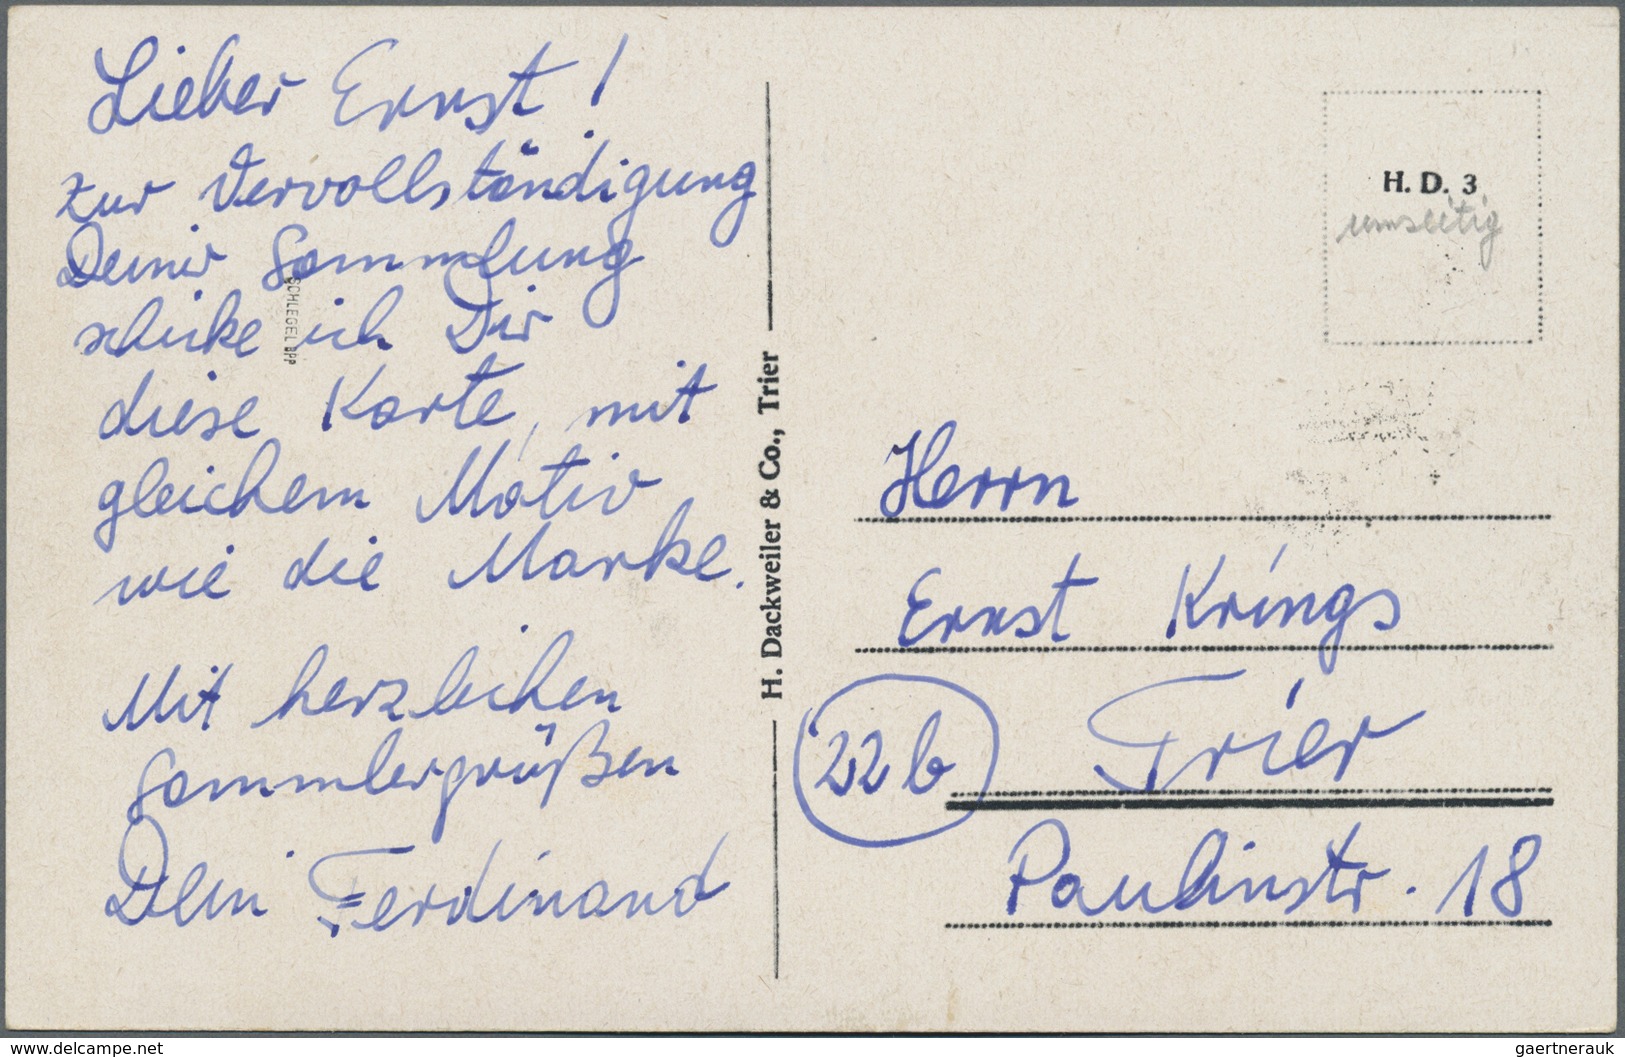 Lieber Ernst!
zur Vervollständigung
Deiner Sammlung
schicke ich Dir
diese Karte, mit
gleichem Motiv
wie die Marke.
Mit herzlichen
Sammlergrüßen
Dein Ferdinand
SCHLEGEL BPP
H. Dackweiler & Co., Trier
H. D. 3
umseitig
Herrn
Ernst Krings
22b Trier
Paulinstr. 18
www.delcampe.net
gaertnerauk